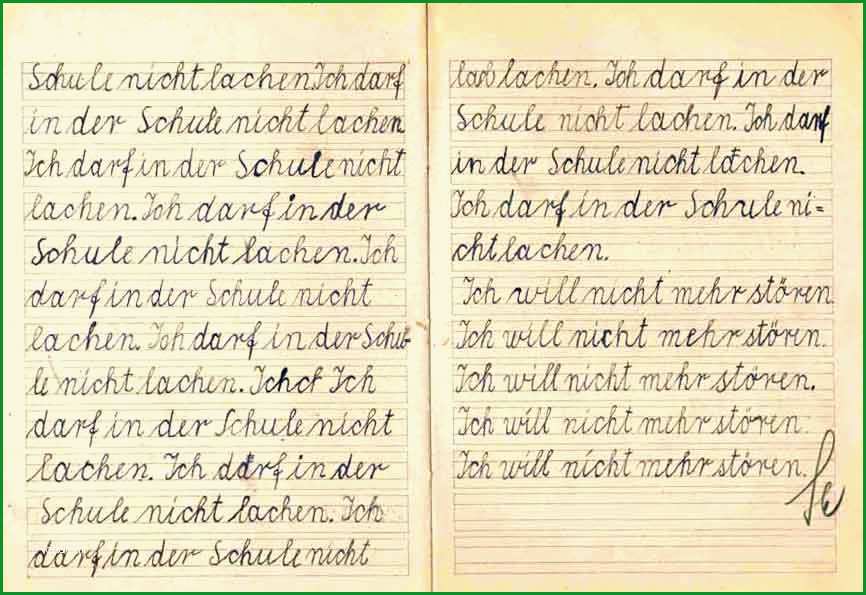 Schule nicht lachen. Ich darf
in der Schule nicht lachen
Ich darf in der Schule nicht
lachen. Ich darf in der
Schule nicht lachen. Ich
darf in der Schule nicht
lachen. Ich darf in der Schu-
le nicht lachen. Ich Ich
darf in der Schule nicht
lachen. Ich darf in der
Schule nicht lachen. Ich
darf in der Schule nicht
lachen. Ich darf in der
Schule nicht lachen. Ich darf
in der Schule nicht lachen.
Ich darf in der Schule ni=
cht lachen.
Ich will nicht mehr stören
Ich will nicht mehr stören.
Ich will nicht mehr stören.
Ich will nicht mehr stören
Ich will nicht mehr stören.